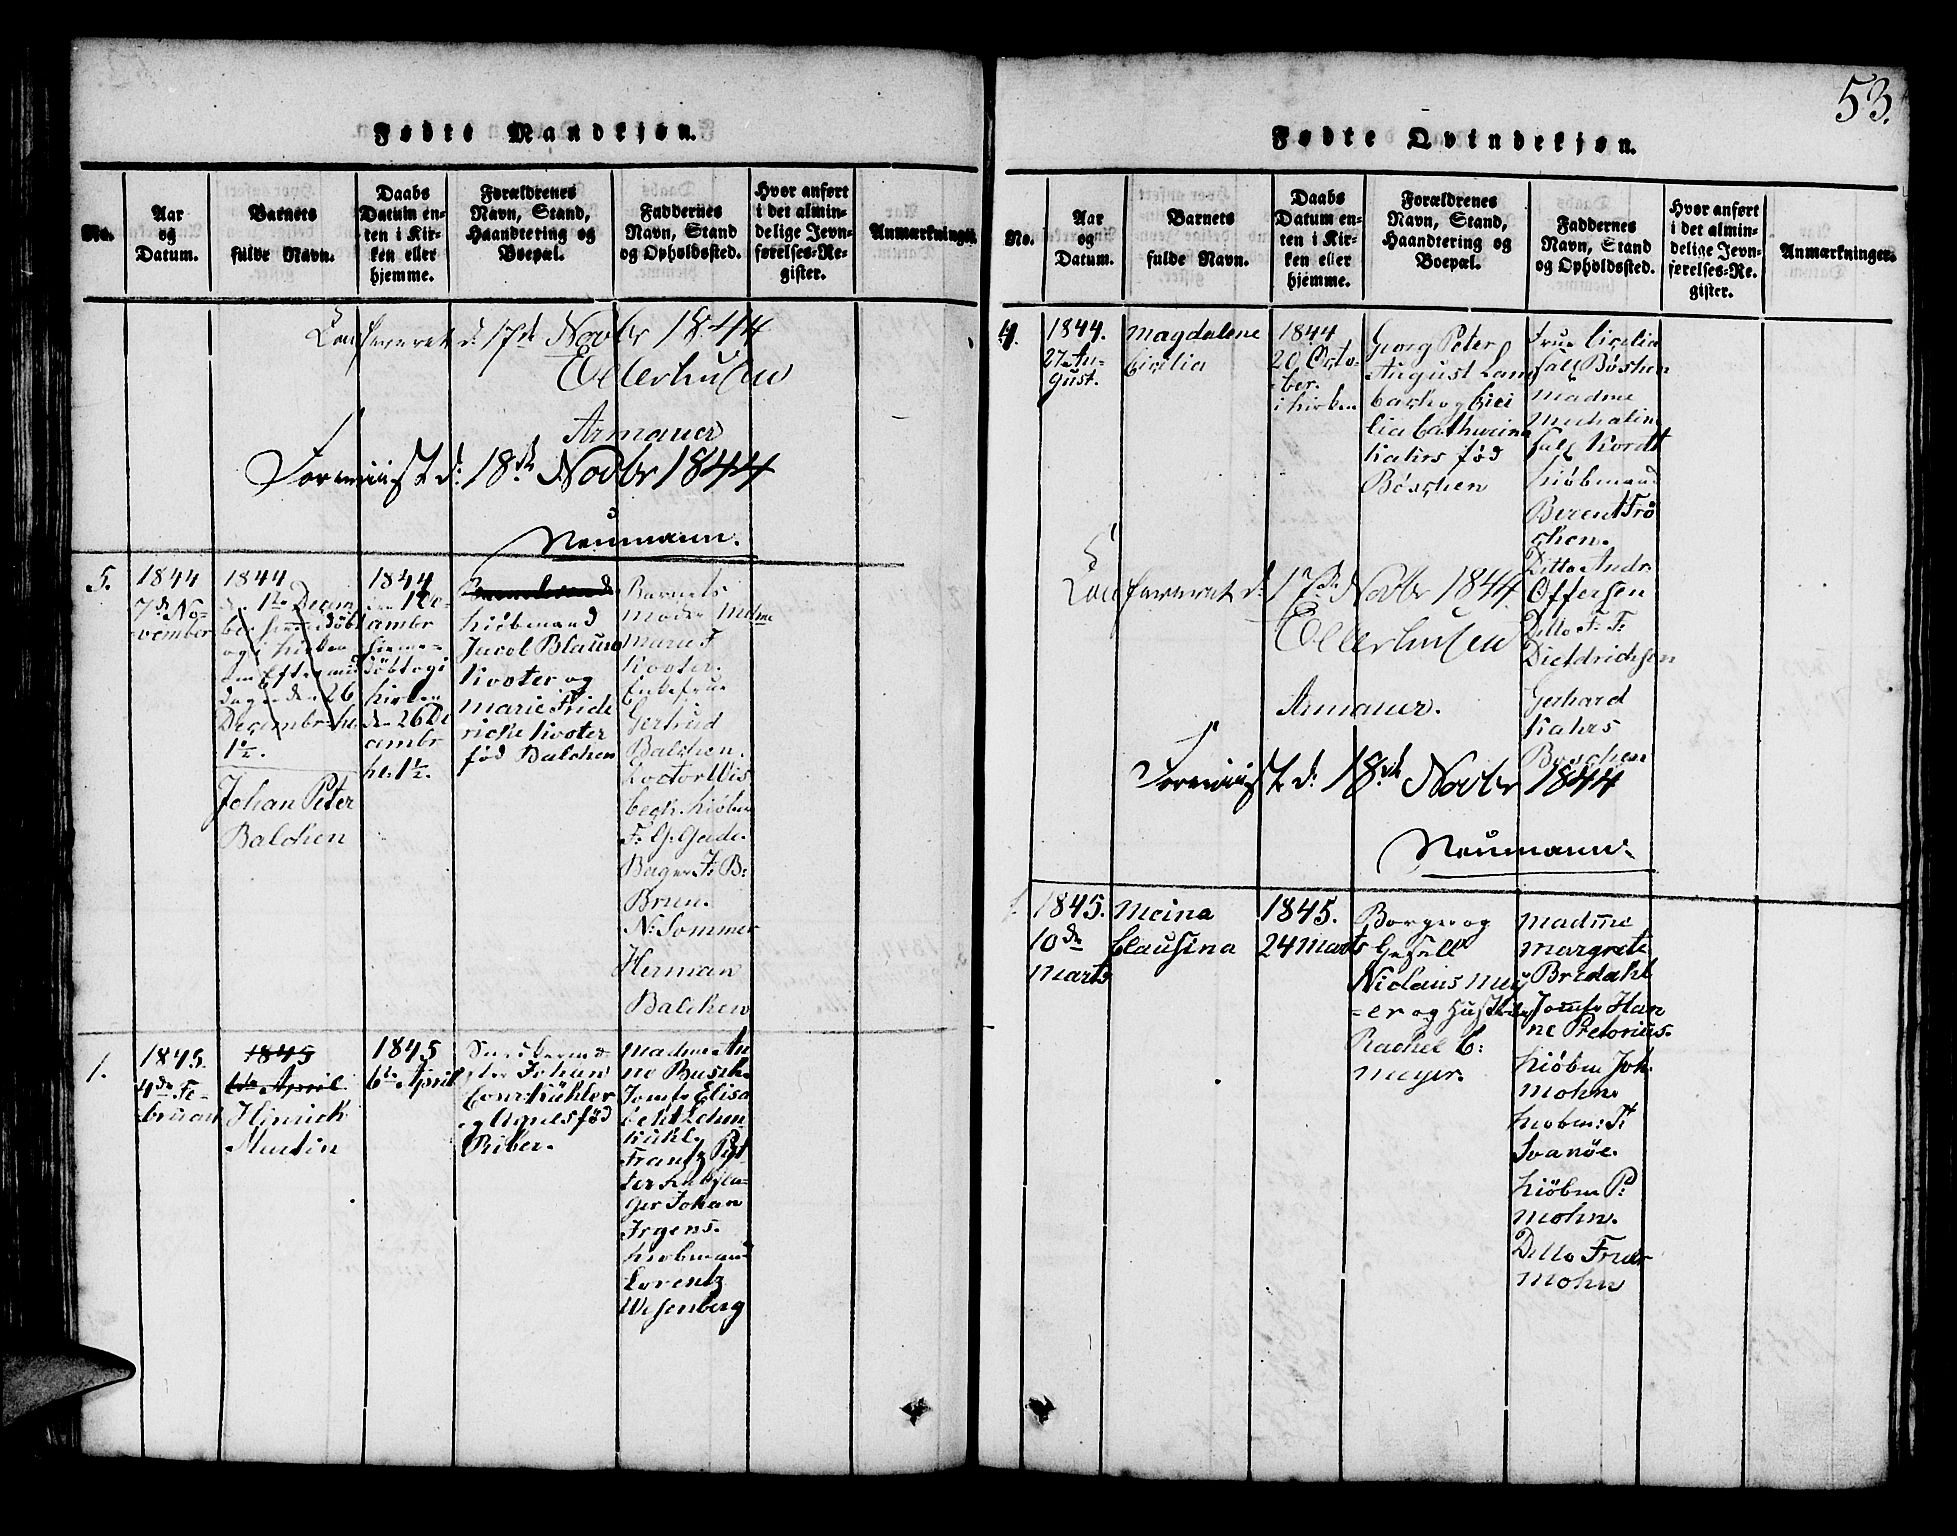 53.
Fødte Mandkjøn.
No.
Aar
og
Datum.
Barnets
fulde Navn.
Daabs
Datum en-
ten i Kir-
ken eller
hjemme.
Forældrenes
Navn, Stand,
Haandtering og
Boepæl.
Faddernes
Navn, Stand
og Opholdssted.
Hvor anført
i det almin-
delige Jevn-
førelses-Re-
gister.
Anmærkninger.
Confereret d: 17de Novbr 1844
Ellerhusen
Armauer
Foreviist d: 18de Novbr 1844
Neumann.
5.
1844
7de No-
vember
1844
den 1te Decem
ber hjemmedøbt
og i Kirken
den
dag den 26
Decembr
1½.
Johan Peter
Balchen
1844
den 1 De-
cembr
hjemme-
døbt og i
Kirken
den 26 De
cembr
kl. 1½.
Kiøbmand
Jacob Blauw
Kroter og
Marie Fride
riche Kroter
fød Balchen
Barnets
Moder Mdme
Marie F
Kroter.
Enkefrue
Gertrud
Balchen.
Doctor Wis
begk. Kiøbm
F. G. Gade.
Bager J: B:
Brun.
N: Sommer
Herman
Balchen
1.
1845.
4de Fe-
bruari
1845
6te April
Hinrick
Martin
1845
6te April
Johan
Conr: Kühler
og Agnes fød
Riber.
Madme An
ne Busch.
Jomfr Elisa
beht Lehm
kuhl.
Frantz Pet
ter
ger Johan
Irgens.
Kiøbmand
Lorentz
Wesenberg
Fødte Qvindekjøn.
No.
Aar
og
Datum.
Barnets
fulde Navn.
Daabs
Datum en-
ten i Kir-
ken eller
hjemme.
Forældrenes
Navn, Stand,
Haandtering og
Boepæl.
Faddernes
Navn, Stand
og Opholdssted.
Hvor anført
i det almin-
delige Jevn-
førelses-Re-
gister.
Anmærkninger.
4.
1844.
27 Au-
gust.
Magdalene
Cicilia
1844
20 Octo-
ber.
i Kirken
Georg Peter
August Lam
bach og Cici
lia Catharina
Kahrs fød
Böschen
Frue Cicilia
Sal: Böschen
Madme
Michaline
Sal: Kordt
Kiøbmand
Berent Frö
chen.
Ditto Andr.
Offersen
Ditto F: F:
Dietdrichson
Gerhard
Kahrs
Boschen
Confereret d: 17de Novbr 1844.
Ellerhusen
Armauer.
Foreviist d: 18de Novbr 1844
Neumann.
1.
1845.
10de
Marts
Meina
Clausina
1845.
24 Marts
Borger og
Gesell
Niclaus Mey
=er og Hustrue
Rachel C:
Meyer.
Madme
Margrete
Bredahl
Jomfr Han
ne Pretorius.
Kiöbm Joh.
Mohn.
Kiobm: F:
Svanöe.
Kiöbm P:
Mohn.
Ditto Fridr
Mohn